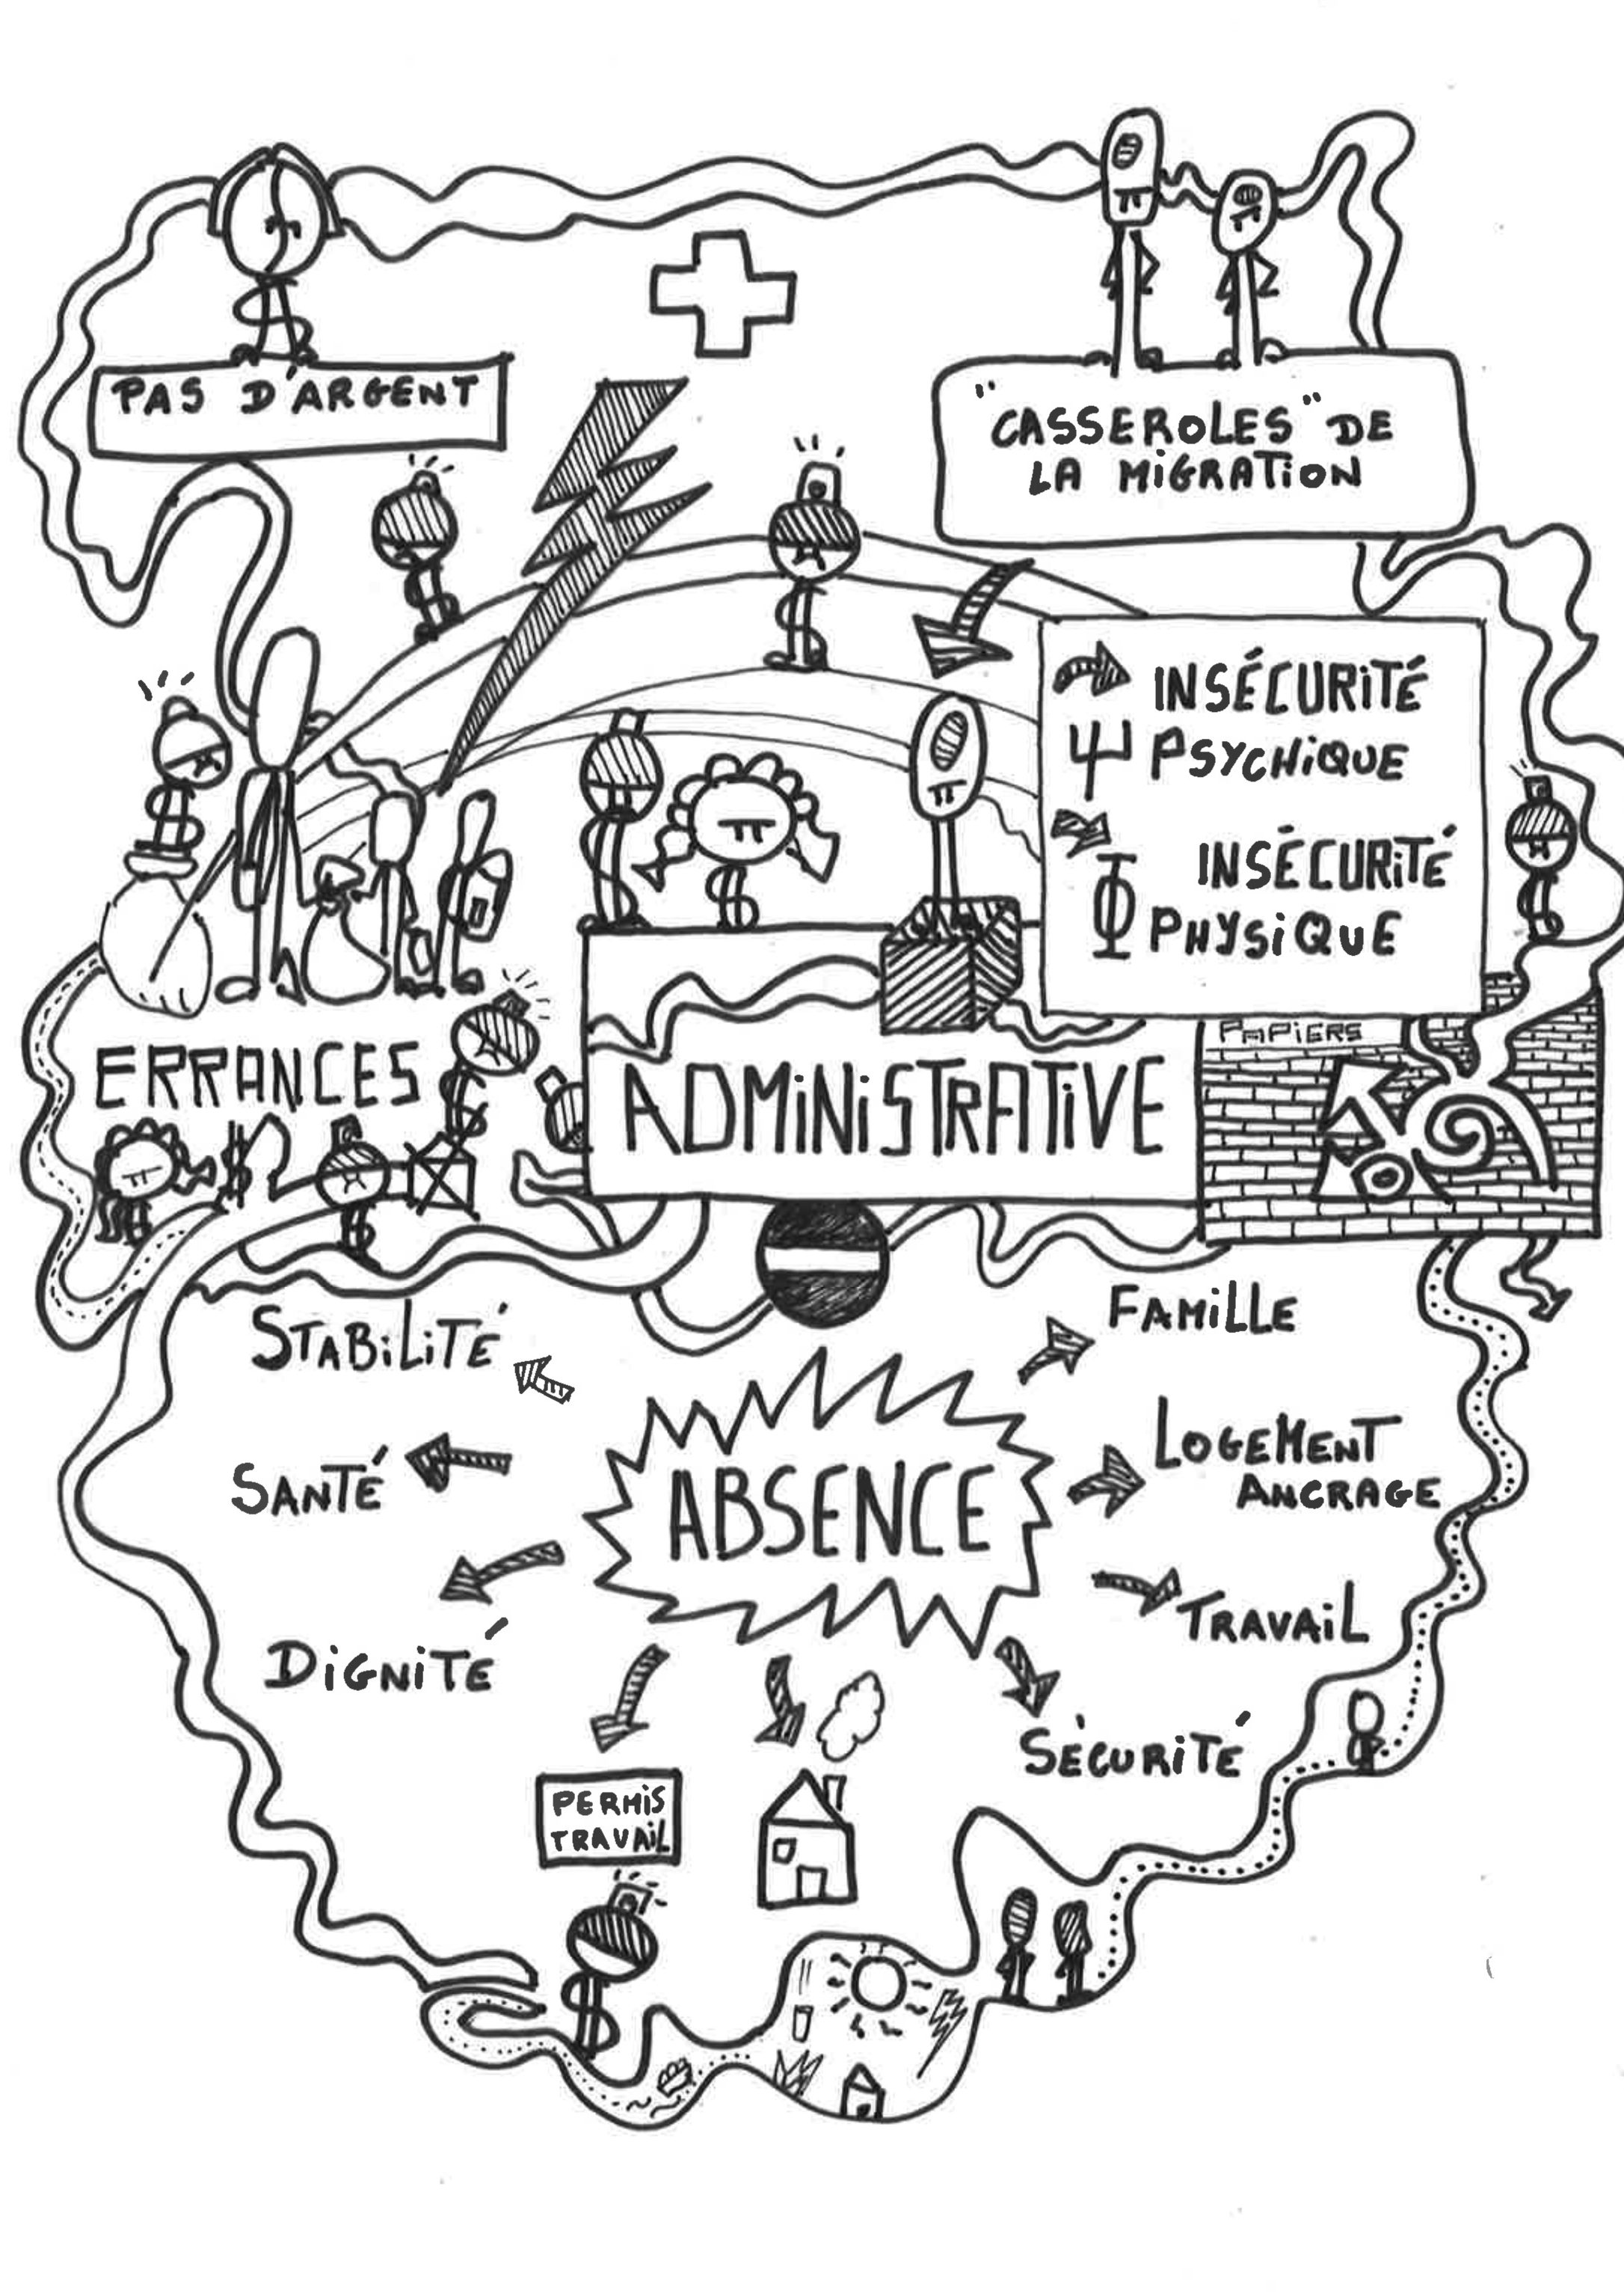 PAS D'ARGENT
"CASSEROLES" DE
LA MIGRATION
INSÉCURITÉ
Ψ PSYCHIQUE
INSÉCURITÉ
Φ PHYSIQUE
ERRANCES
ADMINISTRATIVE
PAPIERS
$
STABILITÉ
FAMILLE
SANTÉ
ABSENCE
LOGEMENT
ANCRAGE
DIGNITÉ
TRAVAIL
SÉCURITÉ
PERMIS
TRAVAIL